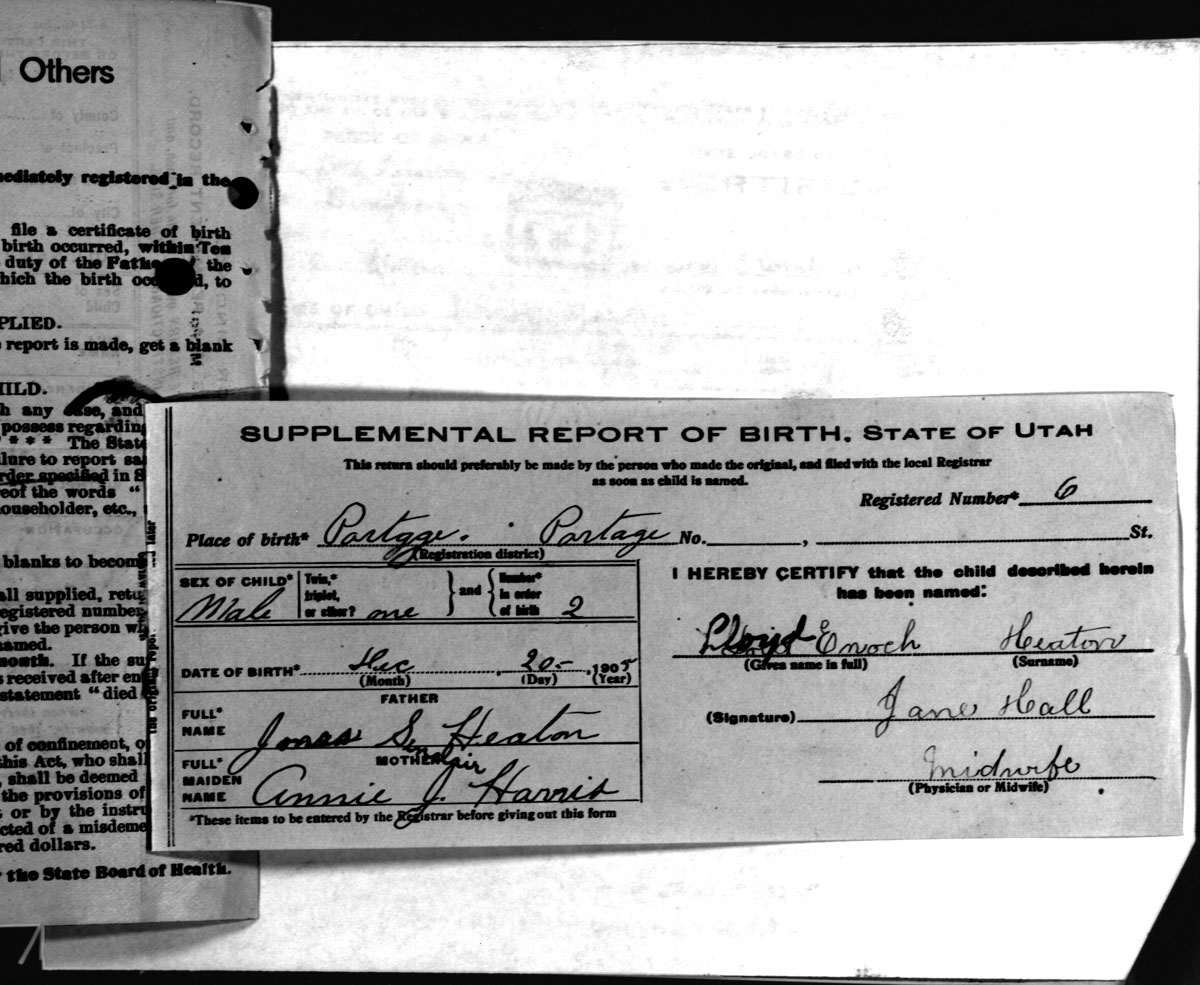 Others
mediately registered in the
file a certificate of birth
birth occurred, within Ten
duty of the Father the
hich the birth occ d, to
PLIED.
report is made, get a blank
HILD.
h any case, and
possess regarding
* * * * The State
ilure to report
rder specified in S
reof the words "
ouseholder, etc.,
blanks to become
all supplied,
egistered number
give the person
named.
month. If the su
s received after
statement "died
of confinement, o
this Act, who shall
, shall be deemed
the provisions of
or by the instru
cted of a misdeme
red dollars.
the State Board of Health.
SUPPLEMENTAL REPORT OF BIRTH. STATE OF UTAH
This return should preferably be made by the person who made the original, and filed with the local Registrar
as soon as child is named.
Registered Number* 6
Place of birth* Portage. Portage No. , St.
(Registration district)
SEX OF CHILD* Male Twin,* triplet, or other? one and Number* in order of birth 2
DATE OF BIRTH* Dec 20- 1905
(Month) (Day) (Year)
FATHER
FULL* NAME Jonas Sinclair Heaton
MOTHER
FULL* MAIDEN NAME Annie J. Harris
*These items to be entered by the Registrar before giving out this form
I HEREBY CERTIFY that the child described herein
has been named:
Lloyd Enoch Heaton
(Given name in full) (Surname)
(Signature) Jane Hall
Midwife
(Physician or Midwife)